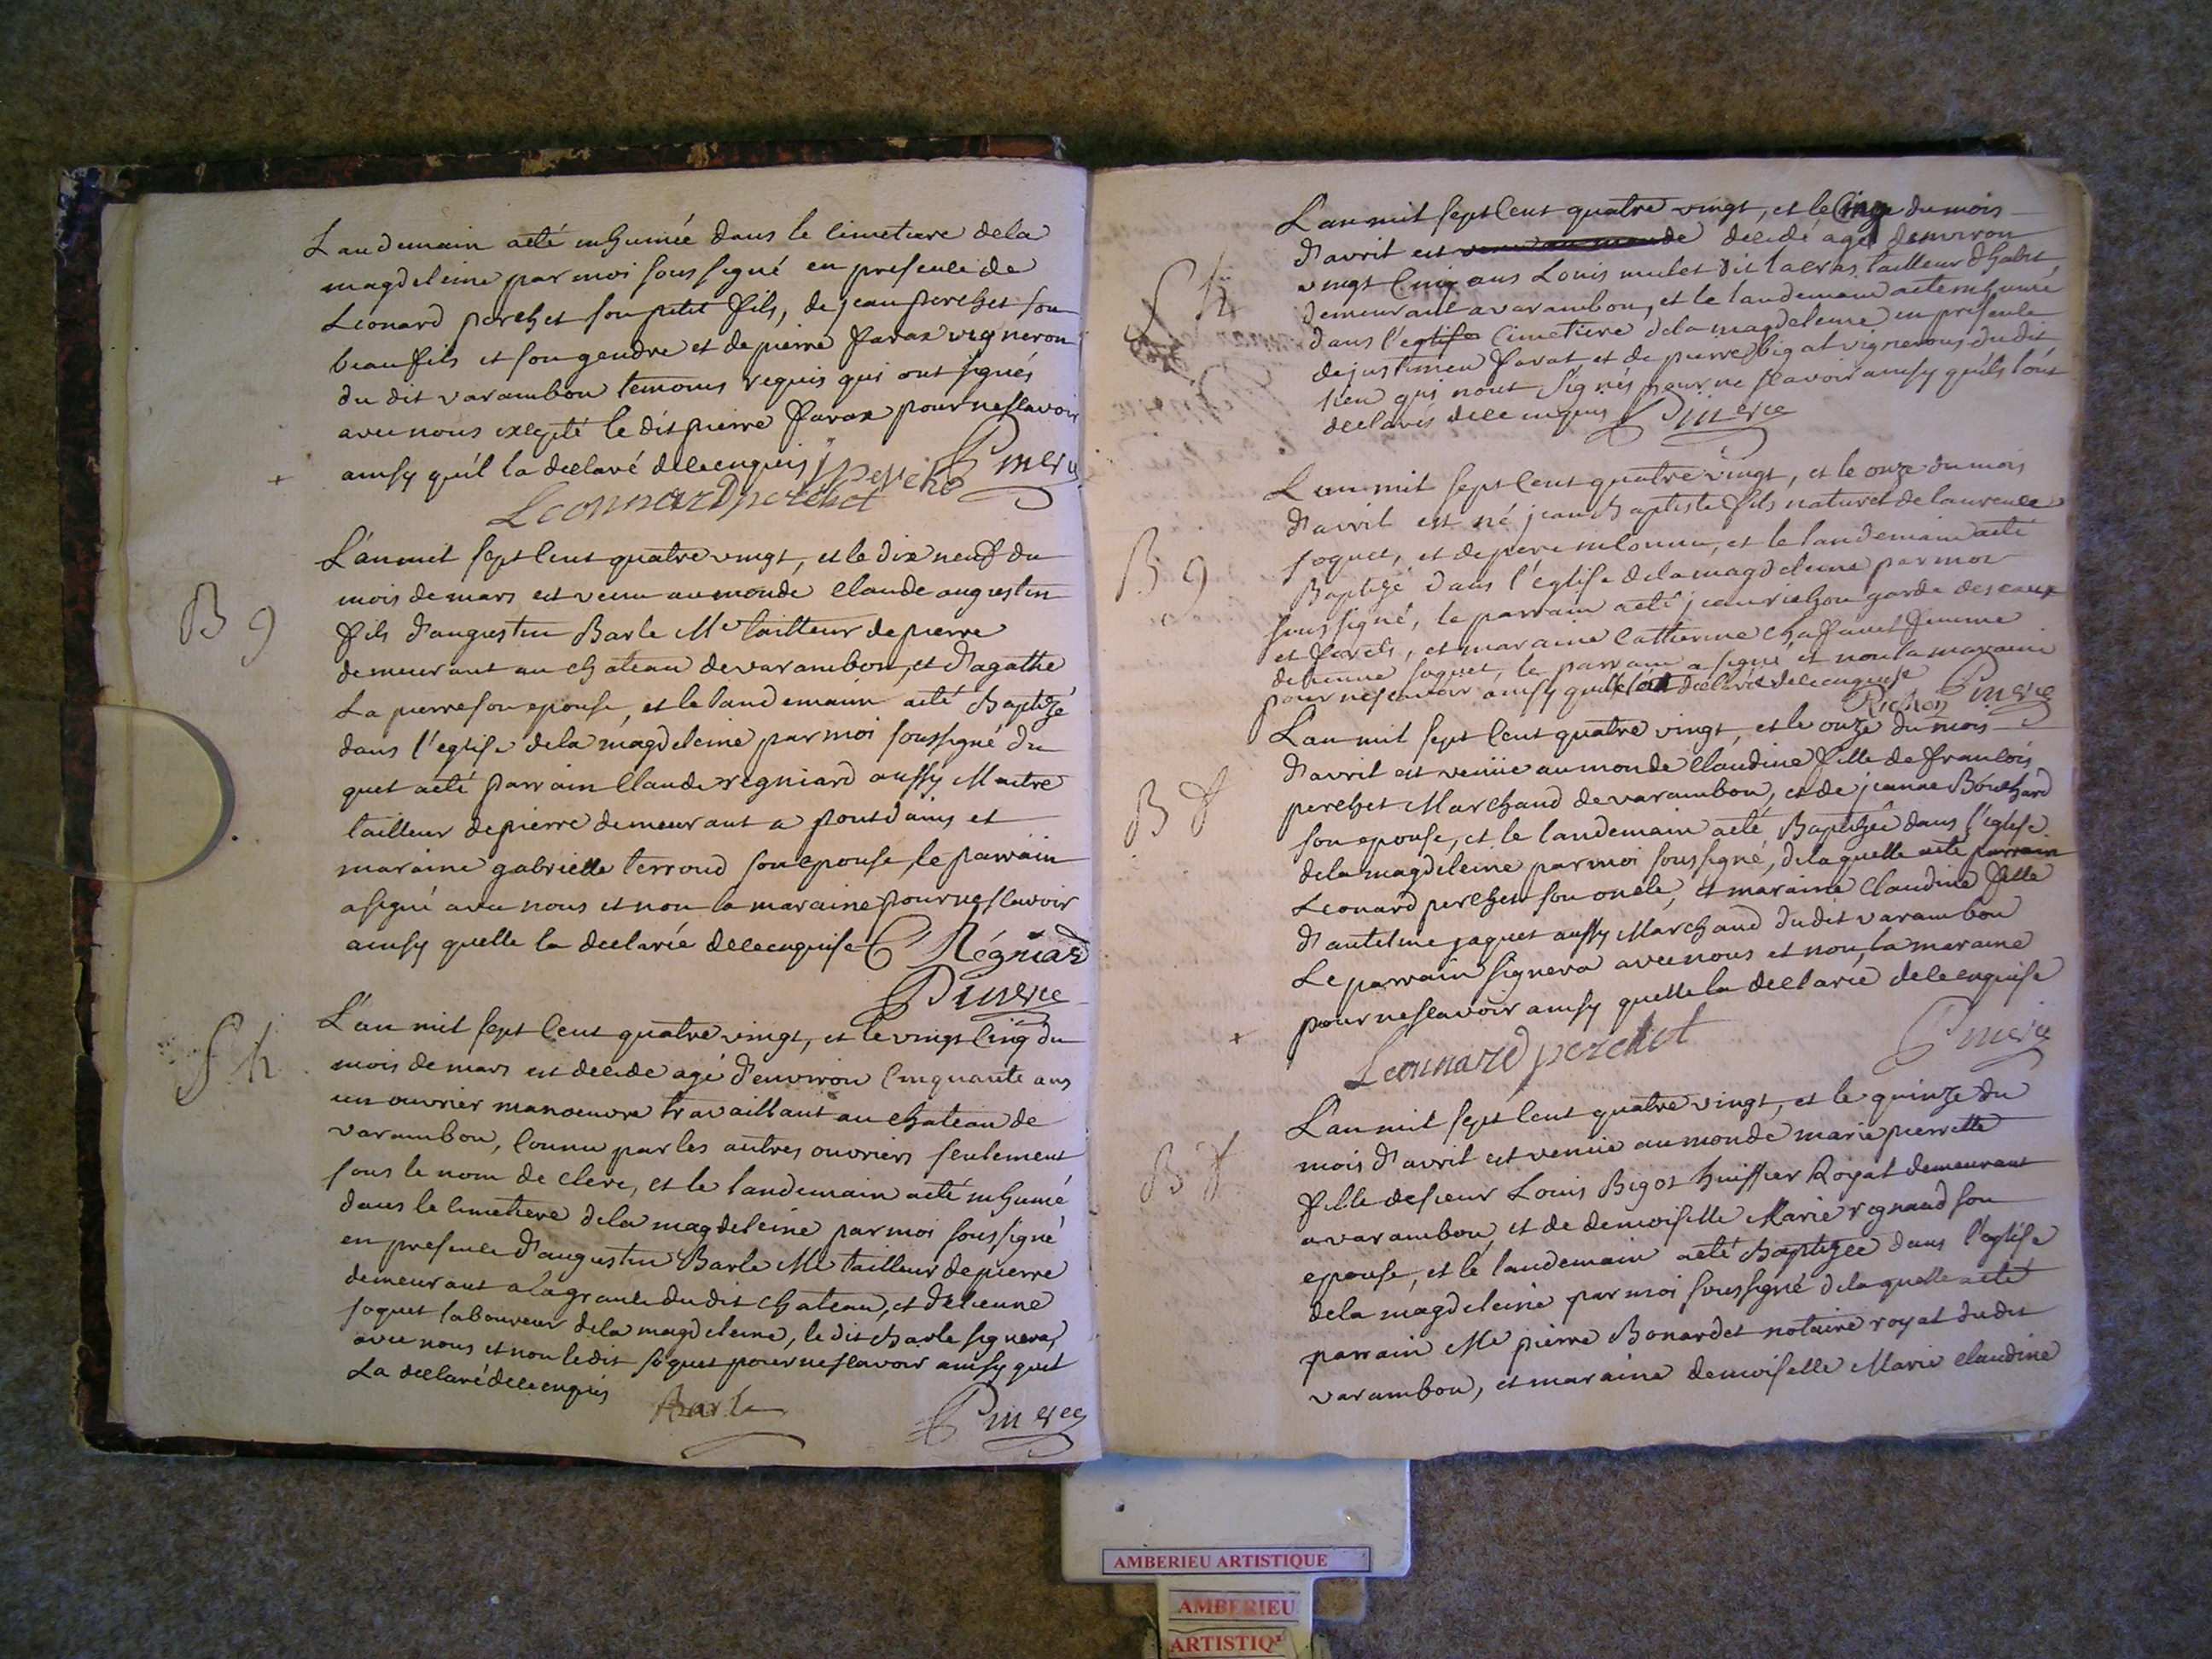 Landemain aeté inhumée dans le cimetiere dela
magdeleine par moi soussigné en presence de
Leonard perchet son petit fils, de jean perchet son
beaufils et son gendre et de pierre favax vigneron
du dit varambon temoins requis qui ont signés
avec nous excepté le dit pierre favax pour ne scavoir
ainsy qu'il la declaré dece enquis
+
Leonnard perchet
L'an mil sept cent quatre vingt, et le dix neuf du
B g
mois de mars est venu au monde Claude augustin
fils d'augustin Barle Me tailleur de pierre
demeurant au chateau devarambon, et d'agathe
La pierre son epouse, et le landemain aeté Baptizé
dans l'eglise dela magdeleine par moi soussigné du
quel aeté parrain Claude regniard aussy Maitre
tailleur de pierre demeurant a pont d'ains et
maraine gabrielle terroud son epouse, le parrain
a signé avec nous et non la maraine pour ne scavoir
ainsy quelle la declarée dece enquise C Régniard
L'an mil sept cent quatre vingt, et le vingt cinq du
S. h.
mois de mars est decede agé d'environ cinquante ans
un ouvrier manoeuvre travaillant au chateau de
varambon, connu par les autres ouvriers seulement
sous le nom de clerc, et le landemain aeté inhumé
dans le cimetiere dela magdeleine par moi soussigné
en presence d'augustin Barle Me tailleur de pierre
demeurant a la grande du dit chateau, et d'etienne
soquet laboureur dela magdeleine, le dit Barle signera,
avec nous et non ledit soquet pour ne scavoir ainsy quel
La declaré dece enquis
Barle
L'an mil sept cent quatre vingt, et le cinq du mois
d'avril est venu au monde decedé agé d'environ
S h
vingt cinq ans Louis mulet dit lacras tailleur d'habit
demeurant a varambon, et le landemain aeté inhumé
dans l'eglise cimetiere dela magdeleine en presence
de justinien favat, et de pierre bigat vignerons du dit
lieu qui n'ont signés pour ne scavoir ainsy qu'ils l'ont
declarés dece enquis
L'an mil sept cent quatre vingt, et le onze du mois
d'avril est né jean Baptiste fils naturel de laurence
B g
soquet, et de pere inconnu, et le landemain aeté
Baptizé dans l'eglise dela magdeleine par moi
soussigné, le parrain aeté jean richon garde des eaux
et forets, et maraine Catherine chaffanel femme
detienne soquet, le parrain a signé et non la maraine
pour ne scavoir ainsy quelle la declaré dece enquise
Richon
L'an mil sept cent quatre vingt, et le onze du mois
d'avril est venüe au monde Claudine fille de francois
B f
perchet Marchand de varambon, et de jeanne Bouchard
son epouse, et le landemain aeté Baptizée dans l'eglise
dela magdeleine par moi soussigné, dela quelle aeté parrain
Leonard perchet son oncle, et maraine Claudine fille
d'antelme jaquet aussy Marchand du dit varambon
Le parrain signera avec nous et non, la maraine
pour ne scavoir ainsy quelle la declarée dece enquise
+
Leonnard perchet
L'an mil sept cent quatre vingt, et le quinze du
mois d'avril est venüe au monde marie pierrette
B f
fille de sieur Louis Bigot huissier Royal demeurant
a varambon, et de demoiselle Marie regnaud son
epouse, et le landemain aeté Baptizée dans l'eglise
dela magdeleine par moi soussigné dela quelle aeté
parrain Me pierre Bonardet notaire royal du dit
varambon, et maraine demoiselle Marie Claudine
AMBERIEU ARTISTIQUE
AMBERIEU
ARTISTIQ